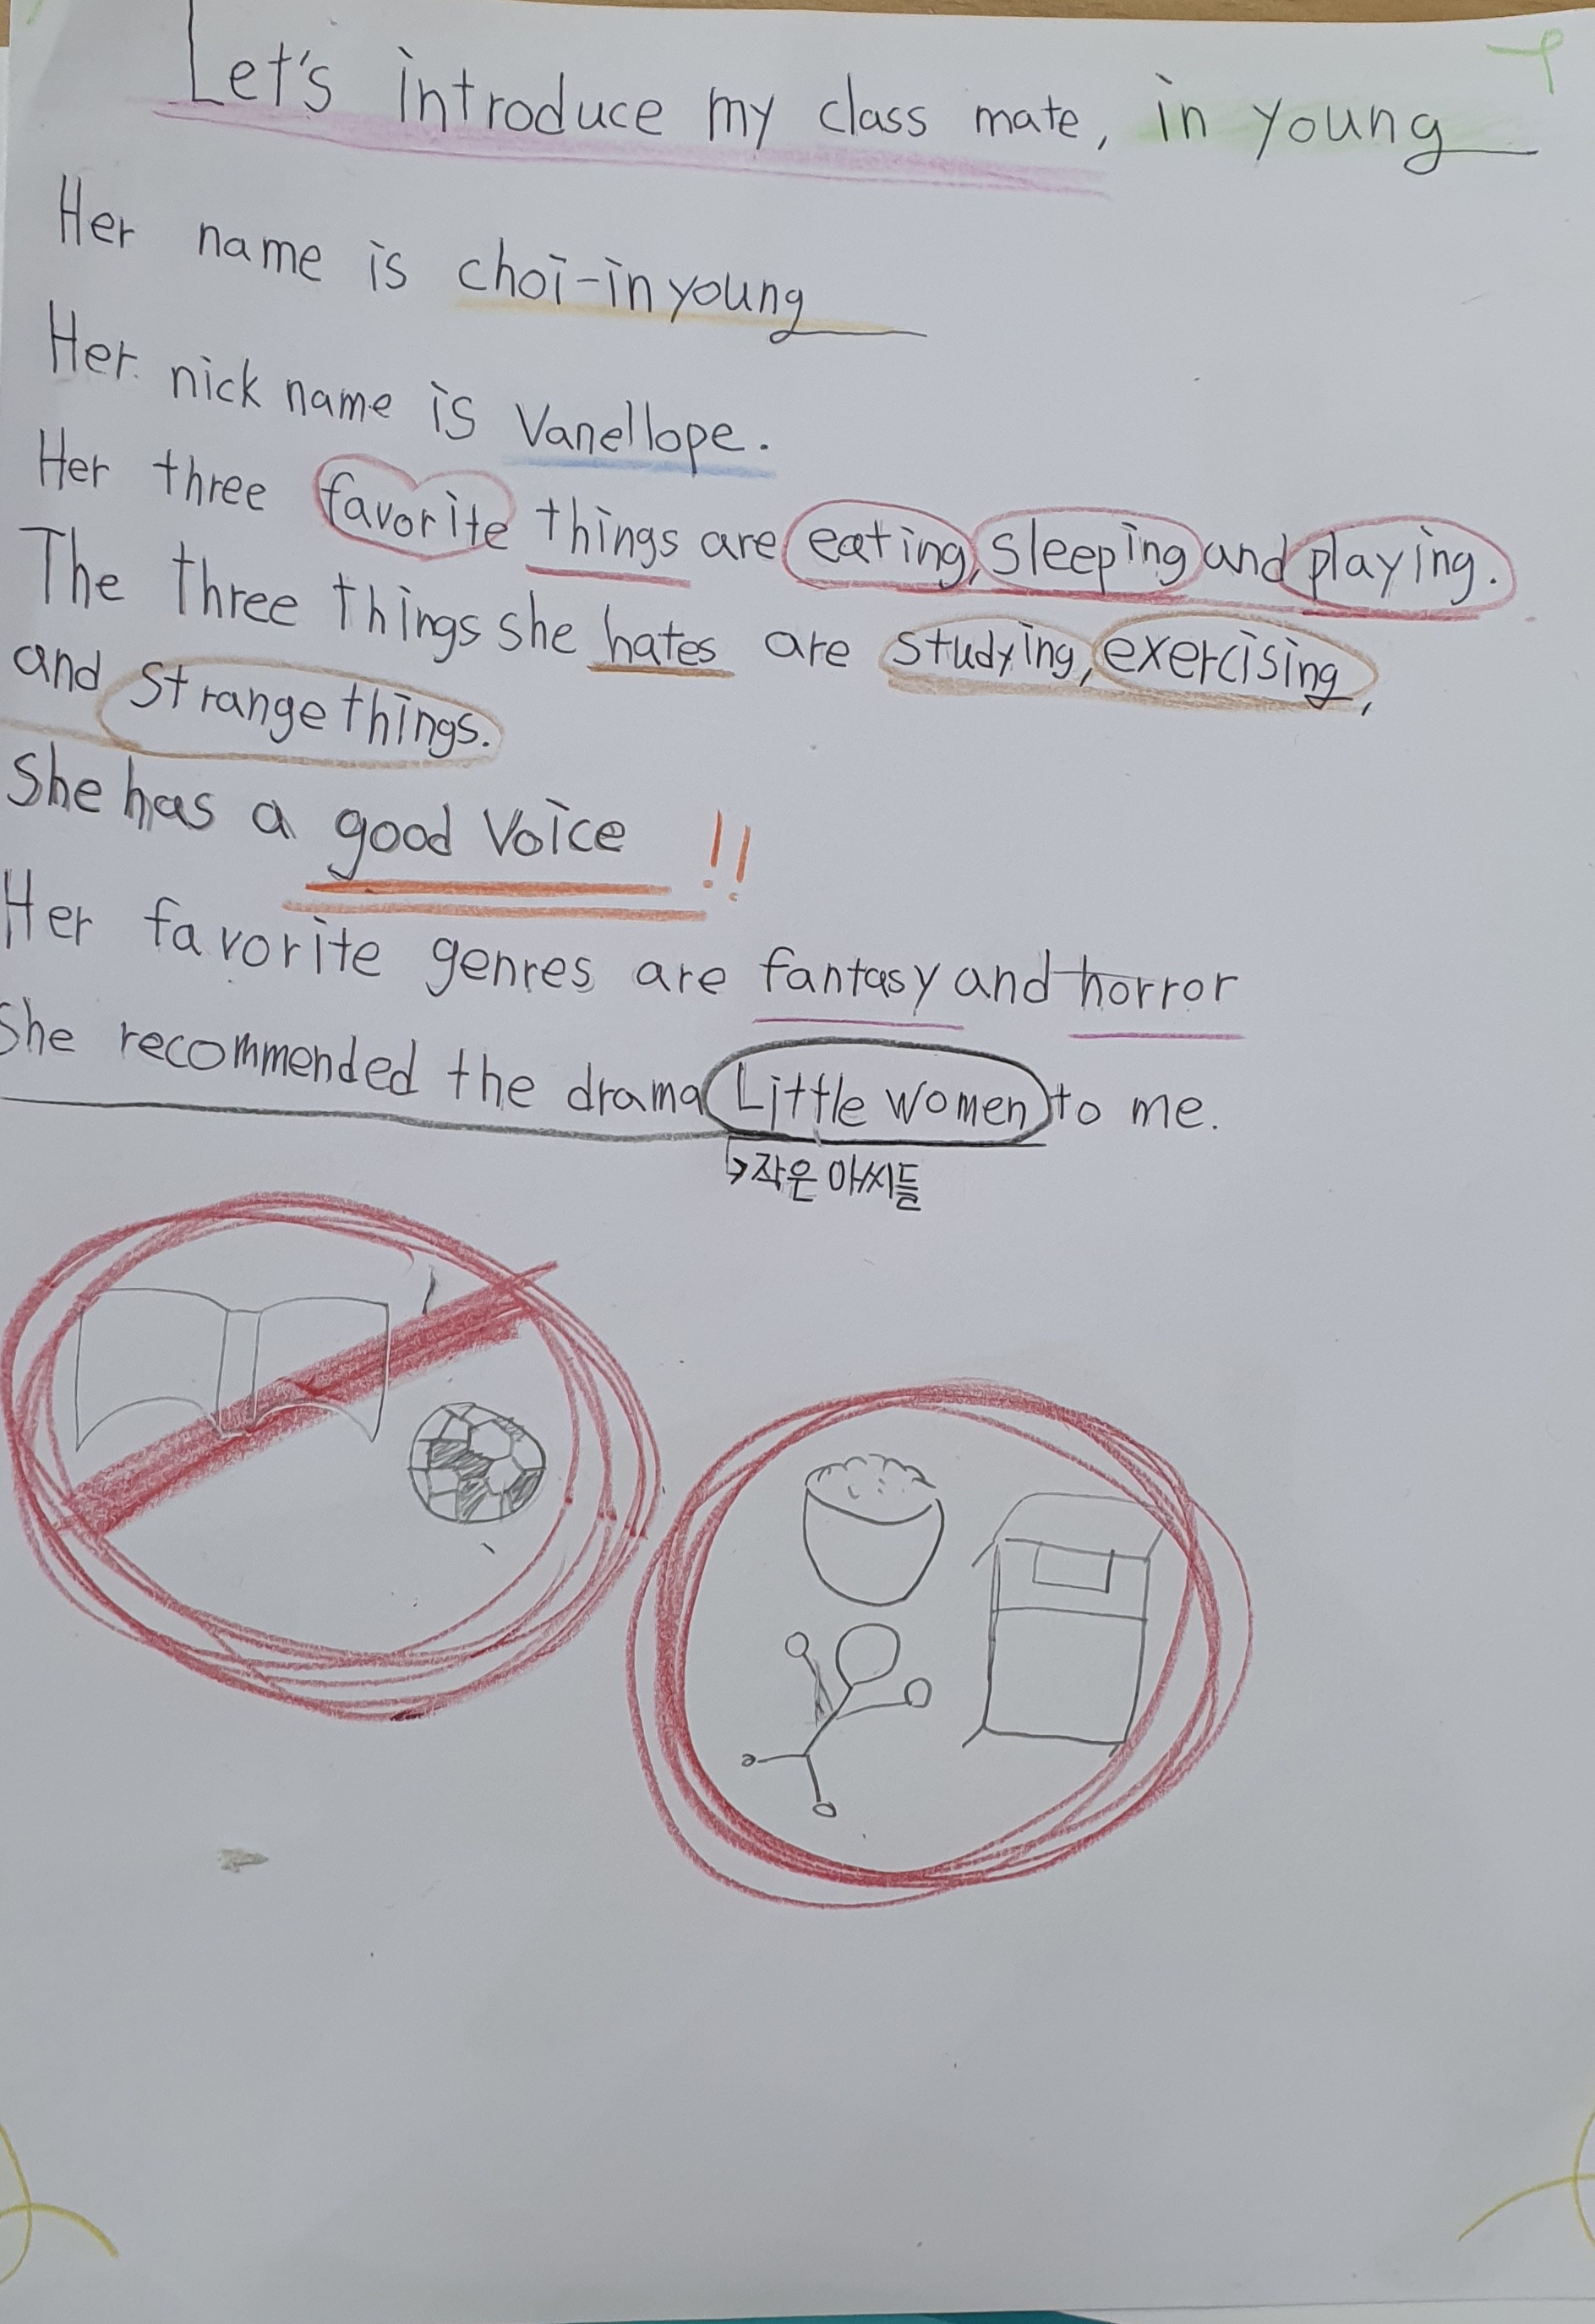 Let's introduce my class mate, in young
Her name is choi-in young
Her nick name is Vanellope.
Her three favorite things are eating, sleeping and playing.
The three things she hates are studying, exercising,
and strange things.
She has a good voice !!
Her favorite genres are fantasy and horror
She recommended the drama Little women to me.
↳작은 아씨들